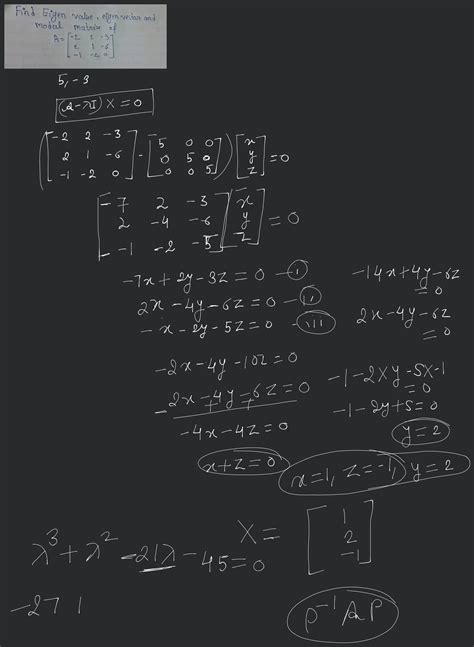 Find Eigen value, eigen vector and
modal matrix of
A = [-2 2 -3
2 1 -6
-1 -2 0]
5, -3
(A-λI) X = 0
([-2 2 -3
2 1 -6
-1 -2 0] - [5 0 0
0 5 0
0 0 5]) [x
y
z] = 0
[-7 2 -3
2 -4 -6
-1 -2 -5] [x
y
z] = 0
-7x+2y-3z=0 -i
2x-4y-6z=0 -ii
-x-2y-5z=0 -iii
-14x+4y-6z
=0
2x-4y-6z
=0
-2x-4y-10z=0
-2x-4y-6z=0
+ +
-4x-4z=0
x+z=0
-1-2xy-5x-1
=0
-1-2y+5=0
y=2
x=1, z=-1, y=2
λ³+λ²-21λ-45=0
X = [1
2
-1]
-27 1
P⁻¹AP